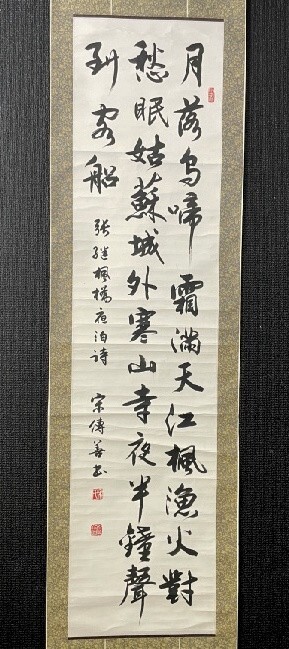 月落烏啼霜滿天江楓漁火對
愁眠姑蘇城外寒山寺夜半鐘聲
到客船
張继楓橋夜泊詩 宋傳善书